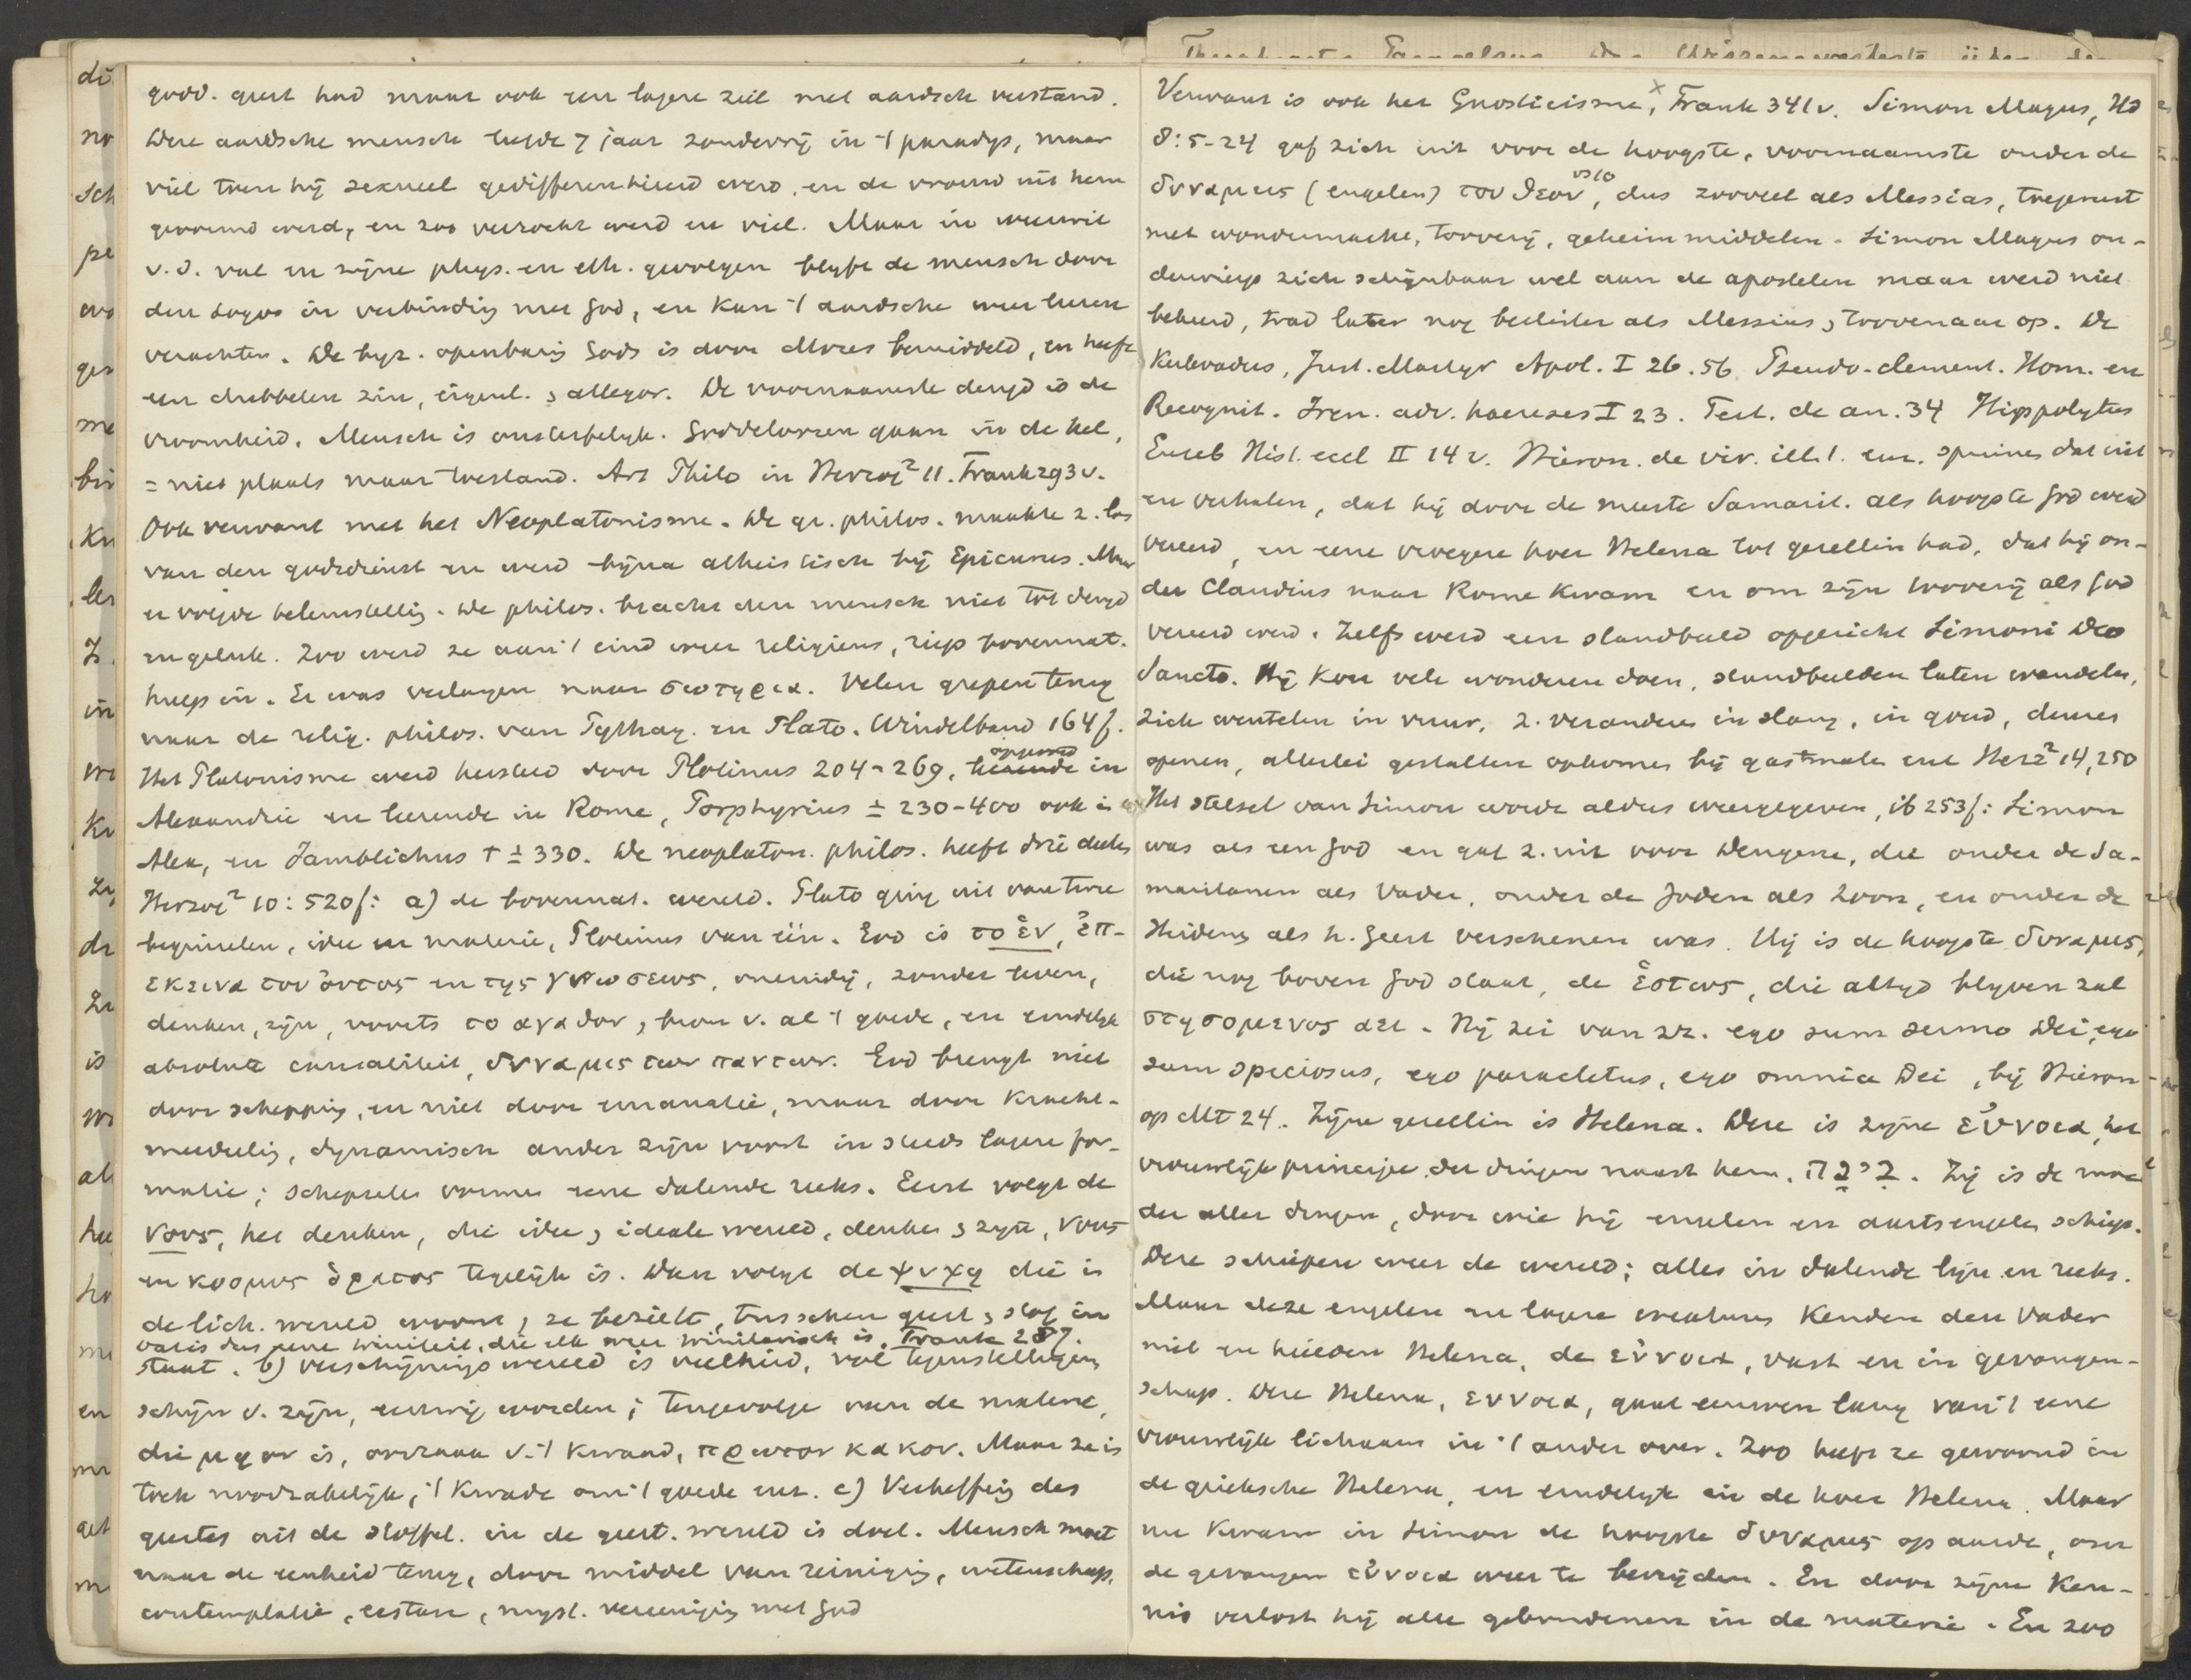 godd. geest had maar ook een lagere ziel met aardsch verstand.
Deze aardsche mensch leefde 7 jaar zondevrij in 't paradijs, maar
viel toen hij sexueel gedifferentieerd werd, en de vrouw uit hem
gevormd werd, en zoo verzocht werd en viel. Maar in weerwil
v. d. val en zijne phys. en eth. gevolgen blijft de mensch door
den Logos in verbinding met God, en kan 't aardsche weer leeren
verachten. De byz. openbaring Gods is door Mozes bemiddeld, en heeft
een dubbelen zin, eigenl. & allegor. De voornaamste deugd is de
vroomheid. Mensch is onsterfelijk. Goddeloozen gaan in de hel,
= niet plaats maar toestand. Art Philo in Herzog² 11. Frank 293 v.
Ook verwant met het Neoplatonisme. De gr. philos. maakte z. los
van den godsdienst en werd bijna atheistisch bij Epicurus. Maar
er volgde teleurstelling. De philos. bracht den mensch niet tot deugd
en geluk. Zoo werd ze aan 't eind weer religieus, riep bovennat.
hulp in. Er was verlangen naar σωτηρια. Velen grepen terug
naar de relig. philos. van Pythag. en Plato. Windelband 164f.
Het Platonisme werd hersteld door Plotinus 204-269, opgevoed in
Alexandrie en leerende in Rome, Porphyrius ± 230-400 ook in
Alex, en Jamblichus † ± 330. De neoplaton. philos. heeft drie deelen
Herzog² 10: 520f: a) de bovennat. wereld. Plato ging uit van twee
beginselen, idee en materie, Plotinus van één. God is το ἑν, ἐπ-
εκεινα του ὀντος en της γνωσεως, oneindig, zonder leven,
denken, zijn, voorts το αγαθον, bron v. al 't goede, en eindelijk
absolute causaliteit, δυναμις των παντων. God brengt niet
door schepping, en niet door emanatie, maar door kracht-
meedeeling, dynamisch ander zijn voort in steeds lagere for-
matie; schepselen vormen eene dalende reeks. Eerst volgt de
νους, het denken, die idee & ideale wereld, denken & zijn, νους
en κοσμος ὁρατος tegelijk is. Dan volgt de ψυχη die in
de lich. wereld woont, ze bezielt, tusschen geest & stof in
Frank 287.
staat. b) verschijningswereld is veelheid, vol tegenstellingen,
schijn v. zijn, eeuwig worden; tengevolge van de materie,
die μη ον is, oorzaak v. 't kwaad, πρωτον κακον. Maar ze is
toch noodzakelijk, 't kwade om 't goede enz. c) Verheffing des
geestes uit de stoffel. in de geest. wereld is doel. Mensch moet
naar de eenheid terug, door middel van reiniging, wetenschap,
contemplatie, extase, myst. vereeniging met God
Verwant is ook het Gnosticisme, Frank 341 v. Simon Magus, Hd
8:5-24 gaf zich uit voor de hoogste, voornaamste onder de
δυναμεις (engelen) του θεου vs 10, dus zooveel als Messias, toegerust
met wondermacht, tooverij, geheim middelen. Simon Magus on-
derwierp zich schijnbaar wel aan de apostelen maar werd niet
bekeerd, trad later nog beslister als Messias & toovenaar op. De
Kerkvaders, Just. Martyr Apol. I 26.56 Pseudo-Clement. Hom. en
Recognit. Iren. adv. haereses I 23. Tert. de an. 34 Hippolytus
Euseb Hist. eccl II 14 v. Hieron. de vir. ill. 1. enz. spreken dat uit
en verhalen, dat hij door de meeste Samarit. als hoogste God werd
vereerd, en eene vroegere hoer Helena tot gezellin had, dat hij on-
der Claudius naar Rome kwam en om zijn tooverij als God
vereerd werd. Zelfs werd een standbeeld opgericht Simoni Deo
Sancto. Hij kon vele wonderen doen, standbeelden laten wandelen,
zich wentelen in vuur, z. veranderen in slang, in goud, deuren
openen, allerlei gestalten opkomen bij gastmalen enz Herz² 14,250
Het stelsel van Simon wordt aldus weergegeven, ib 253f: Simon
was als een God en gaf z. uit voor dengene, die onder de Sa-
maritanen als Vader, onder de Joden als Zoon, en onder de
Heidenen als h. Geest verschenen was. Hij is de hoogste δυναμις,
die nog boven God staat, de ἑστως, die altijd blijven zal
στησομενος αει. Hij zei van zz. ego sum sermo Dei, ego
sum speciosus, ego paracletus, ego omnia Dei, bij Hieron
op Mt 24. Zijne gezellin is Helena. Deze is zijne ἐννοια, het
vrouwelijk principe der dingen naast hem. Zij is de moe
der aller dingen, door wie hij engelen en aartsengelen schiep.
Deze schiepen weer de wereld; alles in dalende lijn en reeks.
Maar deze engelen en lagere creaturen kenden den Vader
niet en hielden Helena, de ἐννοια, vast en in gevangen-
schap. Deze Helena, εννοια, gaat eeuwen lang van 't eene
vrouwelijk lichaam in 't ander over. Zoo heeft ze gewoond in
de grieksche Helena, en eindelijk in de hoer Helena. Maar
nu kwam in Simon de hoogste δυναμις op aarde, om
de gevangen ἐννοια weer te bevrijden. En door zijne Ken-
nis verlost hij alle gebondenen in de materie. En zoo